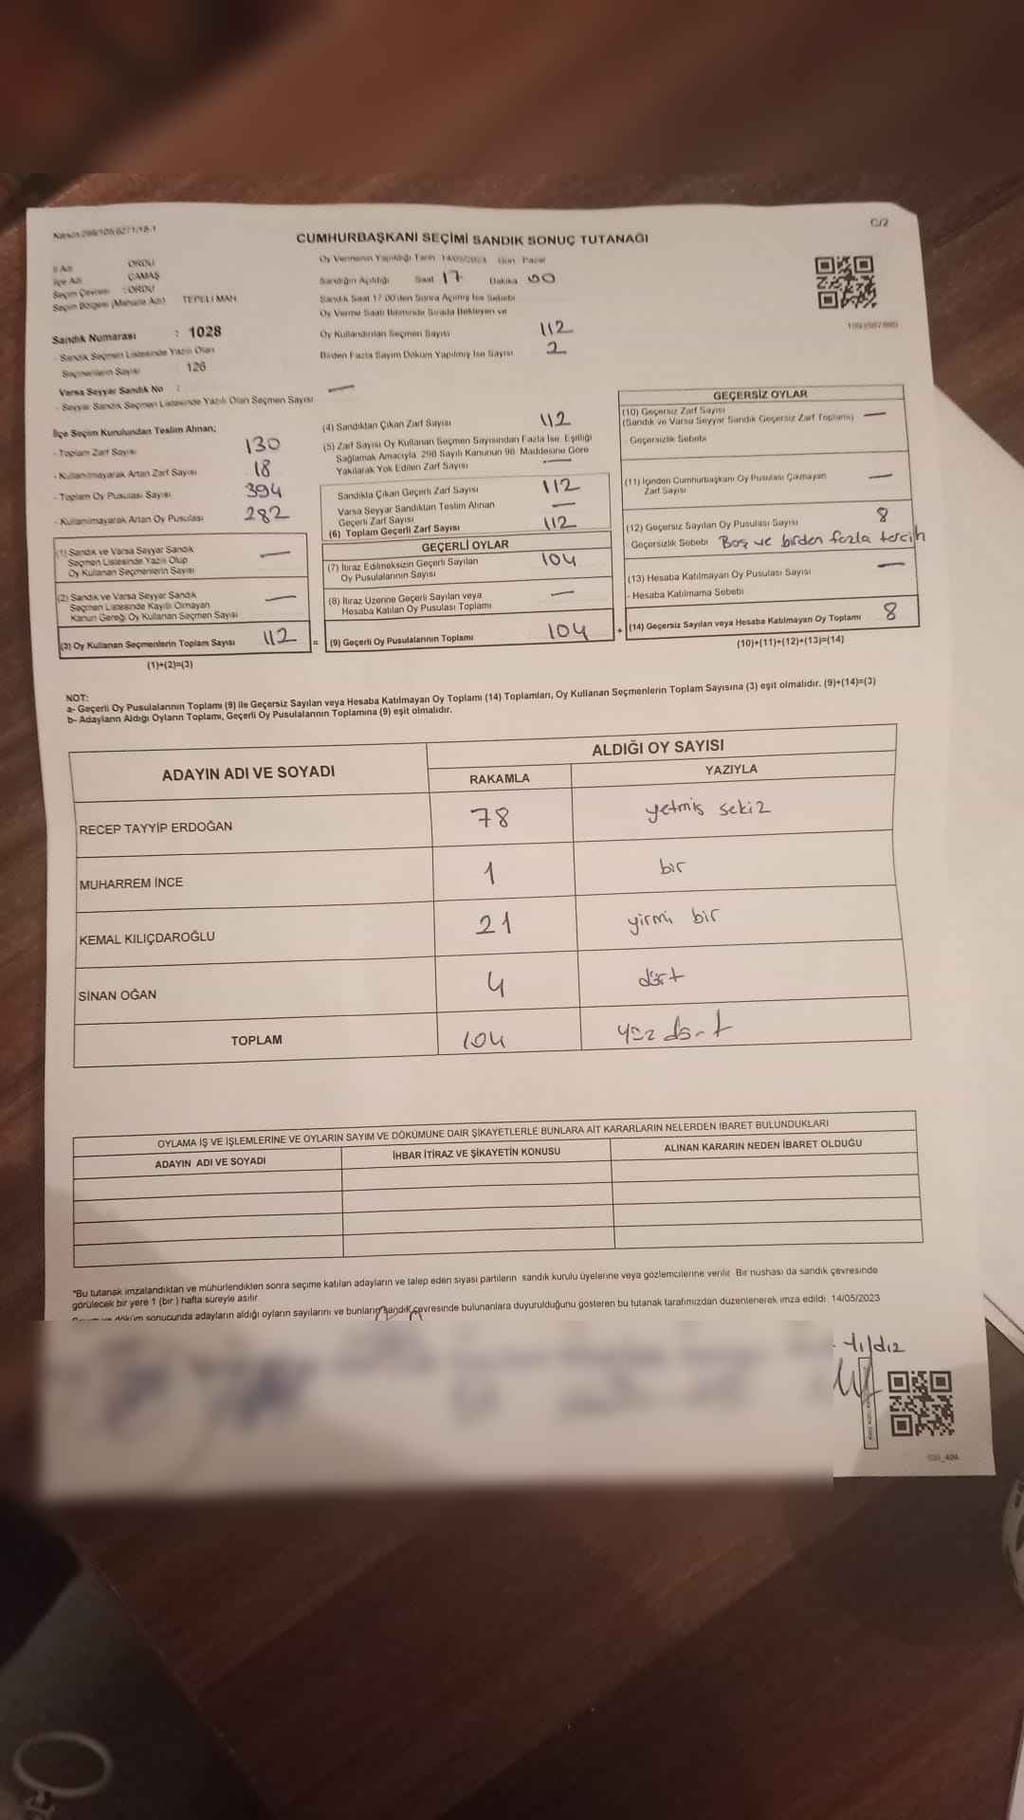 Kanun 298/105 6271/18-1
C/2
CUMHURBAŞKANI SEÇİMİ SANDIK SONUÇ TUTANAĞI
İl Adı ORDU
İlçe Adı ÇAMAŞ
Seçim Çevresi : ORDU
Seçim Bölgesi (Mahalle Adı) TEPELİ MAH
Sandık Numarası : 1028
- Sandık Seçmen Listesinde Yazılı Olan
Seçmenlerin Sayısı 126
Varsa Seyyar Sandık No :
- Seyyar Sandık Seçmen Listesinde Yazılı Olan Seçmen Sayısı —
Oy Vermenin Yapıldığı Tarih 14/05/2023 Gün Pazar
Sandığın Açıldığı Saat 17 Dakika 00
Sandık Saat 17 00'den Sonra Açılmış İse Sebebi
Oy Verme Saati Bitiminde Sırada Bekleyen ve
Oy Kullandırılan Seçmen Sayısı 112
Birden Fazla Sayım Döküm Yapılmış İse Sayısı 2
İlçe Seçim Kurulundan Teslim Alınan;
- Toplam Zarf Sayısı 130
- Kullanılmayarak Artan Zarf Sayısı 18
- Toplam Oy Pusulası Sayısı 394
- Kullanılmayarak Artan Oy Pusulası 282
(1) Sandık ve Varsa Seyyar Sandık
Seçmen Listesinde Yazılı Olup
Oy Kullanan Seçmenlerin Sayısı —
(2) Sandık ve Varsa Seyyar Sandık
Seçmen Listesinde Kayıtlı Olmayan
Kanun Gereği Oy Kullanan Seçmen Sayısı —
(3) Oy Kullanan Seçmenlerin Toplam Sayısı 112
(1)+(2)=(3)
(4) Sandıktan Çıkan Zarf Sayısı 112
(5) Zarf Sayısı Oy Kullanan Seçmen Sayısından Fazla İse Eşitliği
Sağlamak Amacıyla 298 Sayılı Kanunun 98 Maddesine Göre
Yakılarak Yok Edilen Zarf Sayısı —
Sandıkta Çıkan Geçerli Zarf Sayısı 112
Varsa Seyyar Sandıktan Teslim Alınan
Geçerli Zarf Sayısı —
(6) Toplam Geçerli Zarf Sayısı 112
GEÇERLİ OYLAR
(7) İtiraz Edilmeksizin Geçerli Sayılan
Oy Pusulalarının Sayısı 104
(8) İtiraz Üzerine Geçerli Sayılan veya
Hesaba Katılan Oy Pusulası Toplamı —
= (9) Geçerli Oy Pusulalarının Toplamı 104
GEÇERSİZ OYLAR
(10) Geçersiz Zarf Sayısı
(Sandık ve Varsa Seyyar Sandık Geçersiz Zarf Toplamı) —
- Geçersizlik Sebebi
(11) İçinden Cumhurbaşkanı Oy Pusulası Çıkmayan
Zarf Sayısı —
(12) Geçersiz Sayılan Oy Pusulası Sayısı 8
- Geçersizlik Sebebi Boş ve birden fazla tercih
(13) Hesaba Katılmayan Oy Pusulası Sayısı —
- Hesaba Katılmama Sebebi
+ (14) Geçersiz Sayılan veya Hesaba Katılmayan Oy Toplamı 8
(10)+(11)+(12)+(13)=(14)
NOT:
a- Geçerli Oy Pusulalarının Toplamı (9) ile Geçersiz Sayılan veya Hesaba Katılmayan Oy Toplamı (14) Toplamları, Oy Kullanan Seçmenlerin Toplam Sayısına (3) eşit olmalıdır. (9)+(14)=(3)
b- Adayların Aldığı Oyların Toplamı, Geçerli Oy Pusulalarının Toplamına (9) eşit olmalıdır.
ADAYIN ADI VE SOYADI ALDIĞI OY SAYISI
RAKAMLA YAZIYLA
RECEP TAYYİP ERDOĞAN 78 yetmiş sekiz
MUHARREM İNCE 1 bir
KEMAL KILIÇDAROĞLU 21 yirmi bir
SİNAN OĞAN 4 dört
TOPLAM 104 yüz dört
OYLAMA İŞ VE İŞLEMLERİNE VE OYLARIN SAYIM VE DÖKÜMÜNE DAİR ŞİKAYETLERLE BUNLARA AİT KARARLARIN NELERDEN İBARET BULUNDUKLARI
ADAYIN ADI VE SOYADI İHBAR İTİRAZ VE ŞİKAYETİN KONUSU ALINAN KARARIN NEDEN İBARET OLDUĞU
*Bu tutanak imzalandıktan ve mühürlendikten sonra seçime katılan adayların ve talep eden siyasi partilerin sandık kurulu üyelerine veya gözlemcilerine verilir. Bir nüshası da sandık çevresinde
görülecek bir yere 1 (bir ) hafta süreyle asılır.
ve döküm sonucunda adayların aldığı oyların sayılarını ve bunların sandık çevresinde bulunanlara duyurulduğunu gösteren bu tutanak tarafımızdan düzenlenerek imza edildi. 14/05/2023
Yıldız